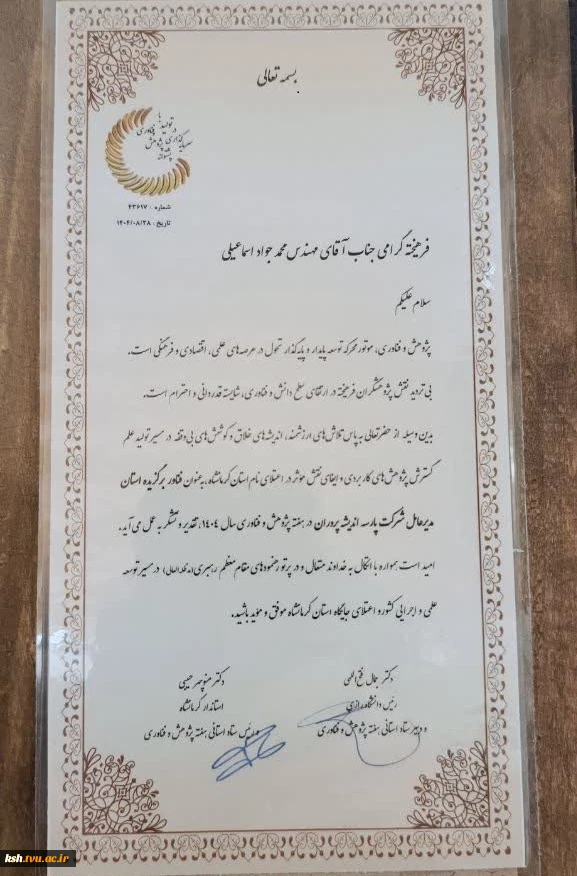 بسمه تعالی
شماره : ۴۳۶۱۷
تاریخ : ۱۴۰۴/۰۸/۲۸
فرهیخته گرامی جناب آقای مهندس محمد جواد اسماعیلی
سلام علیکم
پژوهش و فناوری، موتور محرکه توسعه پایدار و پایه گذار تحول در عرصه های علمی، اقتصادی و فرهنگی است.
بی تردید نقش پژوهشگران فرهیخته در ارتقای سطح دانش و فناوری، شایسته قدردانی و احترام است.
بدین وسیله از حضرتعالی به پاس تلاش های ارزشمند، اندیشه های خلاق و کوشش های بی وقفه در مسیر تولید علم
گسترش پژوهش های کاربردی و ایفای نقش مؤثر در اعتلای نام استان کرمانشاه، به عنوان فناور برگزیده استان
مدیرعامل شرکت پارسه اندیشه پروران در هفته پژوهش و فناوری سال ۱۴۰۴، تقدیر و تشکر به عمل می آید.
امید است همواره با اتکال به خداوند متعال و در پرتو رهنمودهای مقام معظم رهبری (مدظله العالی) در مسیر توسعه
علمی و اجرایی کشور و اعتلای جایگاه استان کرمانشاه موفق و مؤید باشید.
دکتر جمال فتح الهی
رئیس دانشگاه رازی
و دبیر ستاد استانی هفته پژوهش و فناوری
دکتر منوچهر حبیبی
استاندار کرمانشاه
و رئیس ستاد استانی هفته پژوهش و فناوری
ksh.tvu.ac.ir